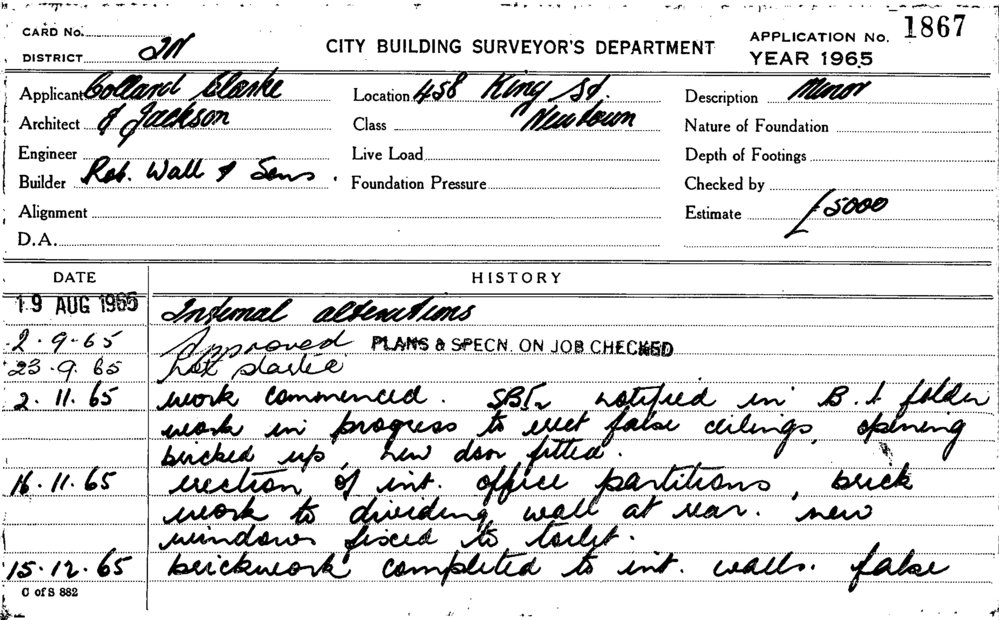 CARD No.
DISTRICT 2N
CITY BUILDING SURVEYOR'S DEPARTMENT
APPLICATION No. 1867
YEAR 1965
Applicant Colland Clarke
Architect & Jackson
Engineer
Builder Rob. Wall & Sons.
Alignment
D.A.
Location 458 King St.
Class Newtown
Live Load
Foundation Pressure
Description Minor
Nature of Foundation
Depth of Footings
Checked by
Estimate £5000
DATE HISTORY
19 AUG 1965 Internal alterations
2.9.65 Approved PLANS & SPECN. ON JOB CHECKED
23.9.65 not started
2.11.65 work commenced. notified in B.I. folder
work in progress to erect false ceilings, opening
bricked up, new door fitted.
16.11.65 erection of int. office partitions, brick
work to dividing wall at rear. new
windows fixed to toilet.
15.12.65 brickwork completed to int. walls. false
C of S 882